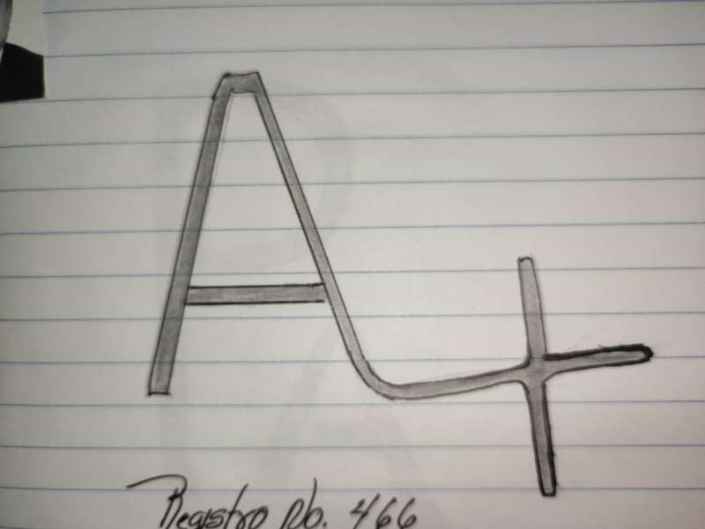 A4
Registro No. 466